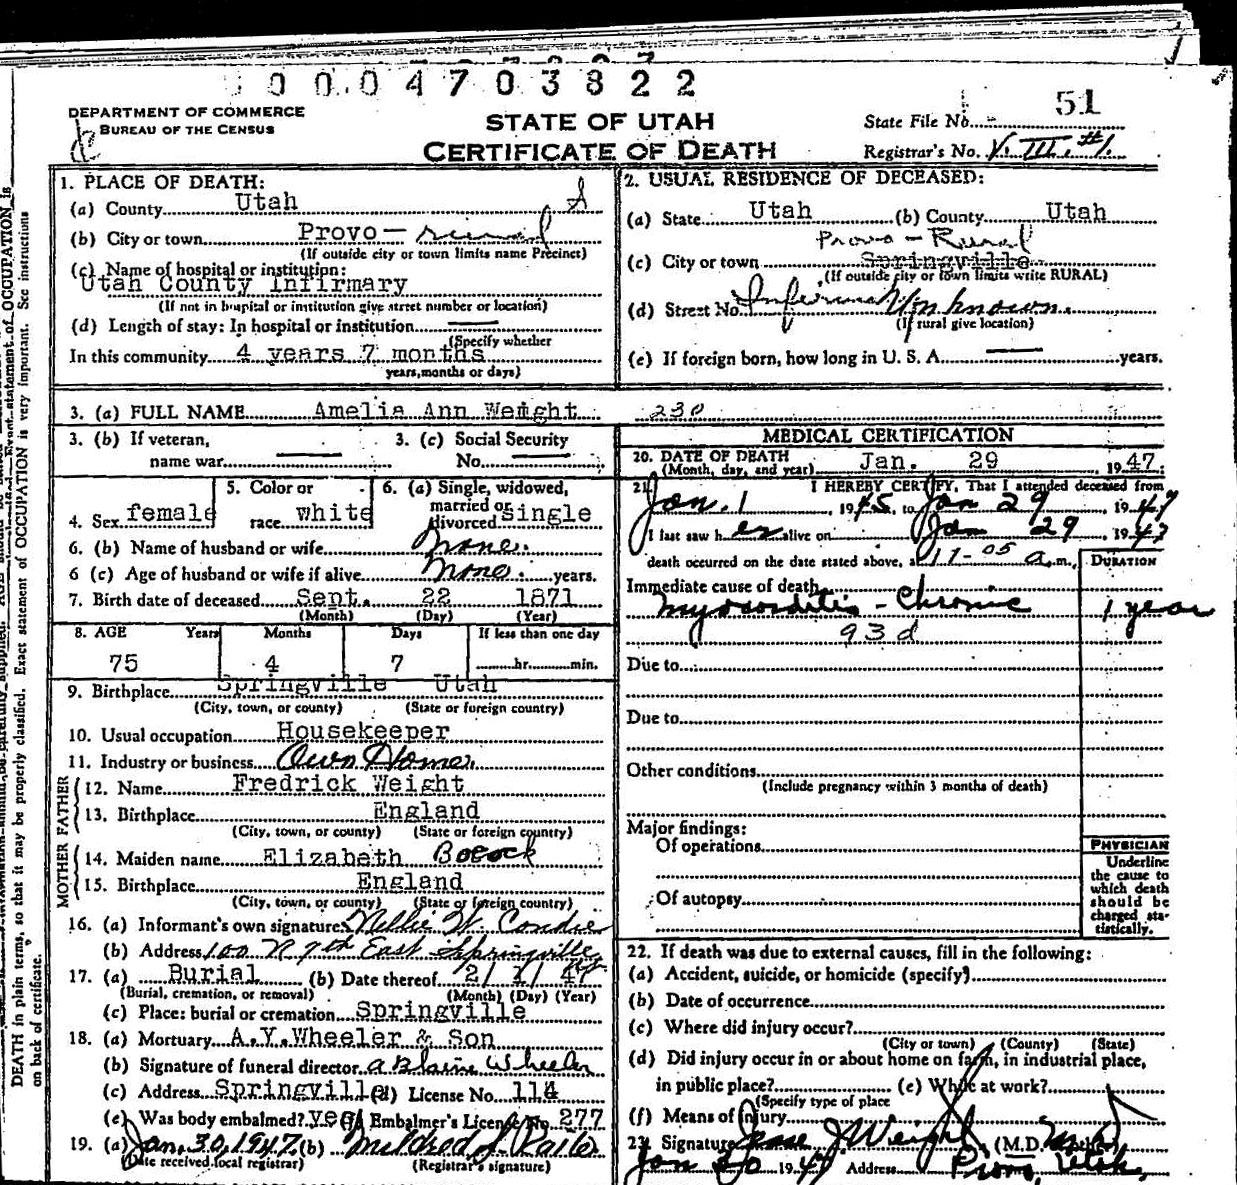 0 0 0 0 4 7 0 3 8 2 2
DEPARTMENT OF COMMERCE
BUREAU OF THE CENSUS
STATE OF UTAH
CERTIFICATE OF DEATH
State File No. 51
Registrar's No. V. III. #1.
1. PLACE OF DEATH:
(a) County Utah
(b) City or town Provo — rural
(If outside city or town limits name Precinct)
(c) Name of hospital or institution:
Utah County Infirmary
(If not in hospital or institution give street number or location)
(d) Length of stay: In hospital or institution —
(Specify whether
In this community 4 years 7 months
years, months or days)
2. USUAL RESIDENCE OF DECEASED:
(a) State Utah (b) County Utah
Provo — Rural
(c) City or town Springville
(If outside city or town limits write RURAL)
(d) Street No. Infirmary Unknown.
(If rural give location)
(e) If foreign born, how long in U. S. A. — years.
3. (a) FULL NAME Amelia Ann Weight 230
3. (b) If veteran,
name war —
3. (c) Social Security
No. —
4. Sex female
5. Color or
race white
6. (a) Single, widowed,
married or
divorced single
6. (b) Name of husband or wife None.
6 (c) Age of husband or wife if alive None. years.
7. Birth date of deceased Sept. 22 1871
(Month) (Day) (Year)
8. AGE Years Months Days If less than one day
75 4 7 hr. min.
9. Birthplace Springville Utah
(City, town, or county) (State or foreign country)
10. Usual occupation Housekeeper
11. Industry or business Own Home.
FATHER
12. Name Fredrick Weight
13. Birthplace England
(City, town, or county) (State or foreign country)
MOTHER
14. Maiden name Elizabeth Bocock
15. Birthplace England
(City, town, or county) (State or foreign country)
16. (a) Informant's own signature Nellie W. Condie
(b) Address 100 N 7th East Springville
17. (a) Burial (b) Date thereof 2/1/47
(Burial, cremation, or removal) (Month) (Day) (Year)
(c) Place: burial or cremation Springville
18. (a) Mortuary A.Y.Wheeler & Son
(b) Signature of funeral director A Blaine Wheeler
(c) Address Springville (d) License No. 114
(e) Was body embalmed? yes (f) Embalmer's License No. 277
19. (a) Jan. 30, 1947. (b) Mildred J.
(Date received local registrar) (Registrar's signature)
MEDICAL CERTIFICATION
20. DATE OF DEATH
(Month, day, and year) Jan. 29, 1947.
21. I HEREBY CERTIFY, That I attended deceased from
Jan. 1, 1945, to Jan 29, 1947
I last saw her alive on Jan 29, 1947
death occurred on the date stated above, at 11-05 a.m.
DURATION
Immediate cause of death
Myocarditis - Chronic 1 year
93d
Due to
Due to
Other conditions
(Include pregnancy within 3 months of death)
Major findings:
Of operations
Of autopsy
PHYSICIAN
Underline
the cause to
which death
should be
charged sta-
tistically.
22. If death was due to external causes, fill in the following:
(a) Accident, suicide, or homicide (specify)
(b) Date of occurrence
(c) Where did injury occur?
(City or town) (County) (State)
(d) Did injury occur in or about home on farm, in industrial place,
in public place? (e) While at work?
(Specify type of place
(f) Means of Injury
23. Signature Jesse J Weight (M.D.
Jan 30 1947 Address Provo, Utah.
DEATH in plain terms, so that it may be properly classified. Exact statement of OCCUPATION is very important. See instructions
on back of certificate.